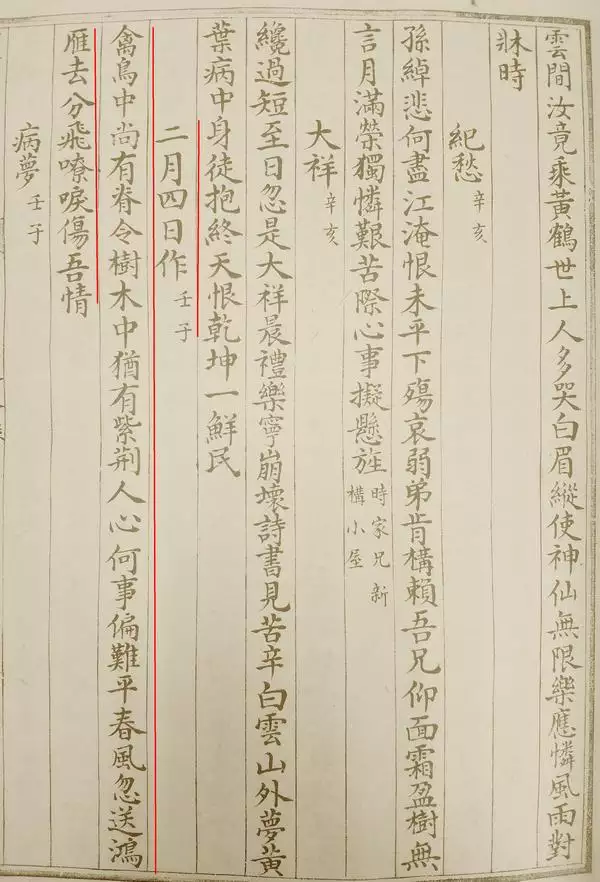 雲間汝竟乘黃鶴世上人多哭白眉縱使神仙無限樂應憐風雨對
牀時
紀愁 辛亥
孫綽悲何盡江淹恨未平下殤哀弱弟肯構賴吾兄仰面霜盈樹無
言月滿榮獨憐艱苦際心事擬懸旌 時家兄新構小屋
大祥 辛亥
纔過短至日忽是大祥晨禮樂寧崩壞詩書見苦辛白雲山外夢黃
葉病中身徒抱終天恨乾坤一鮮民
二月四日作 壬子
禽鳥中尚有脊令樹木中猶有紫荆人心何事偏難平春風忽送鴻
雁去分飛嘹唳傷吾情
病夢 壬子